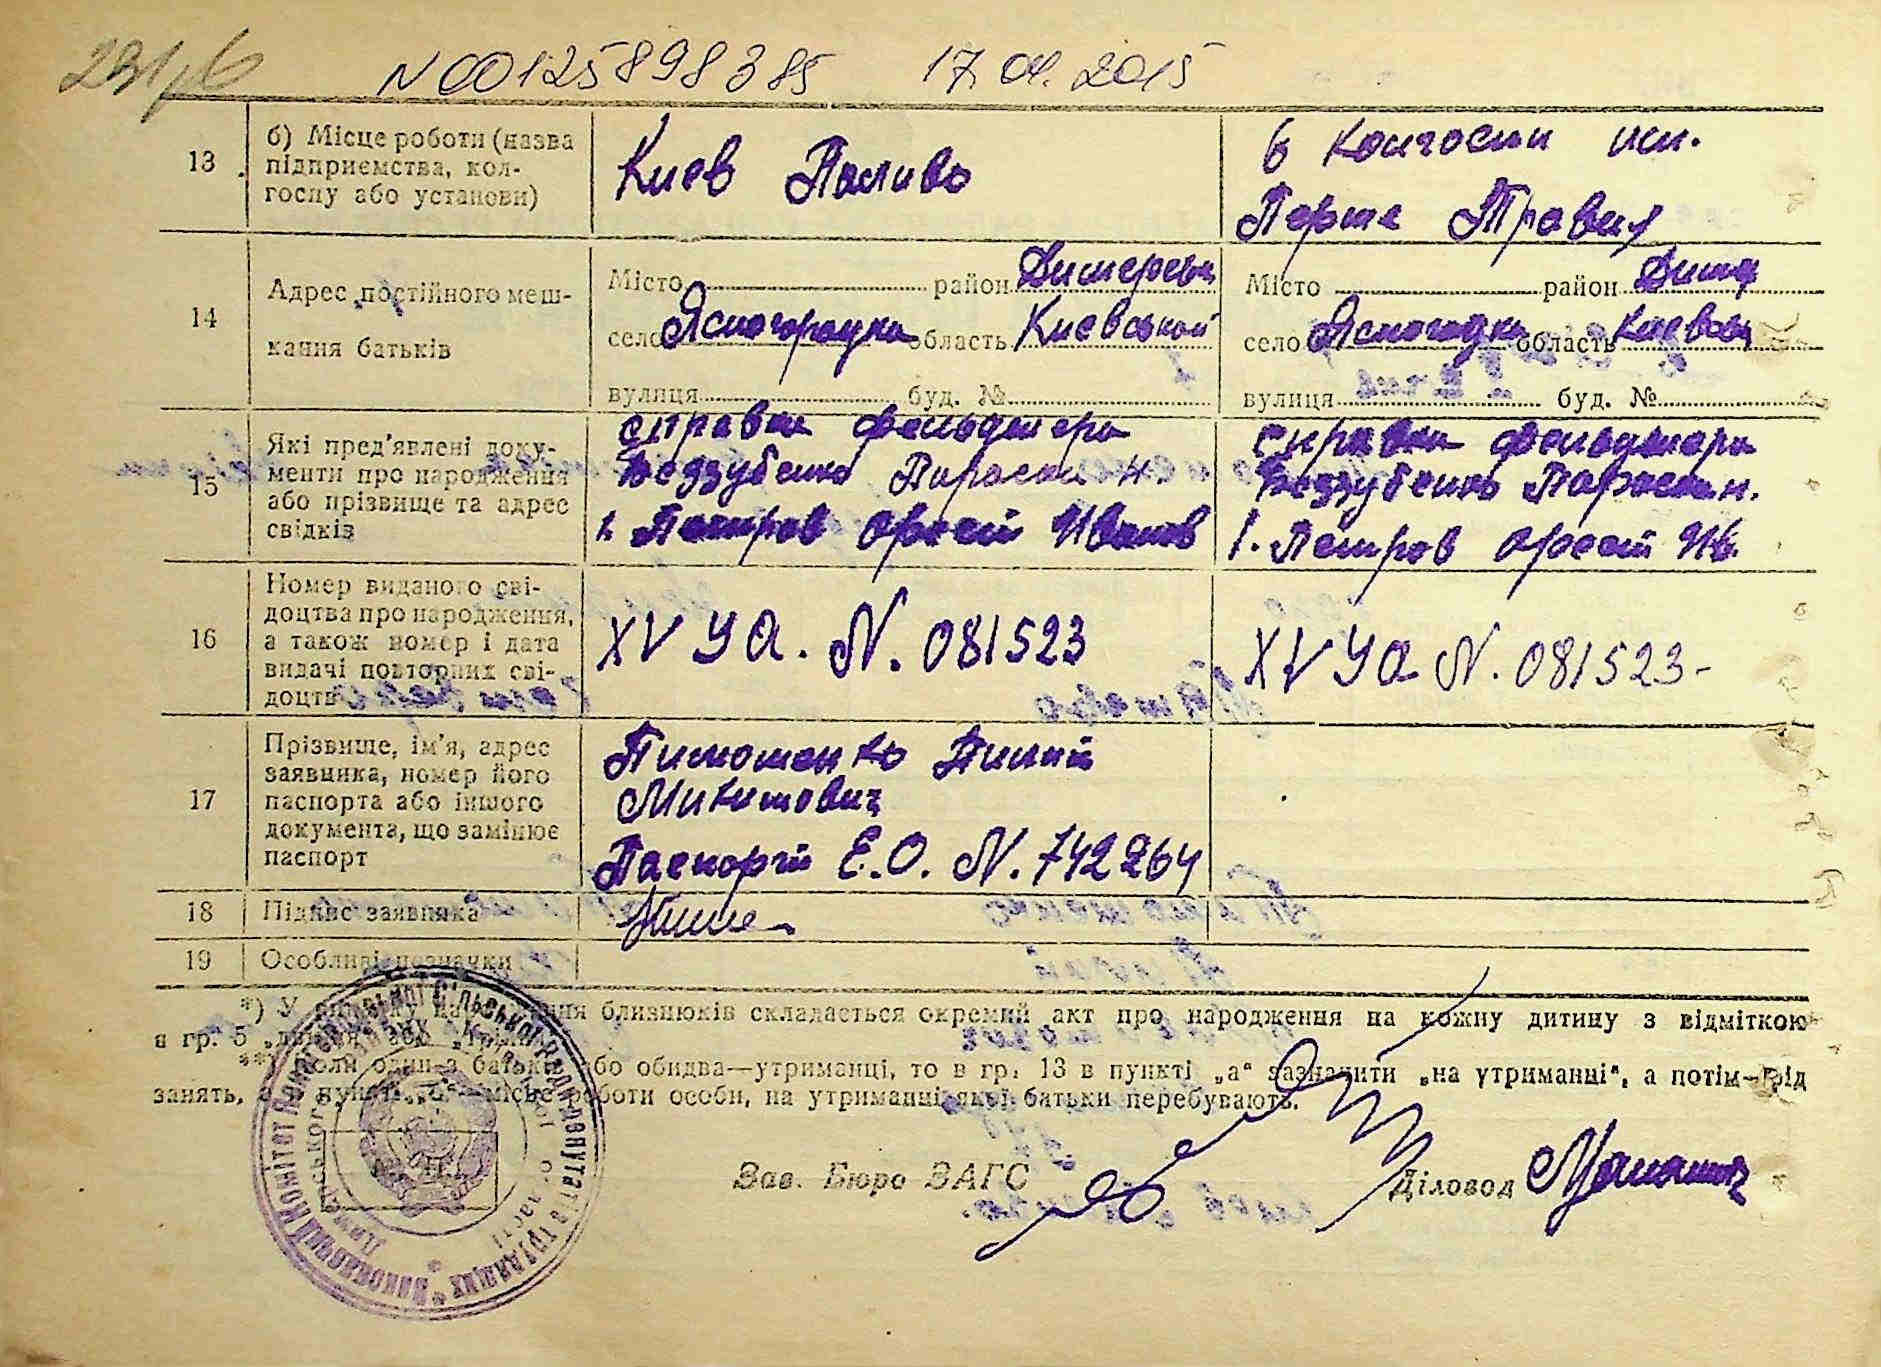 231/6 N 00125898385 17.04.2015
13 б) Місце роботи (назва підприємства, колгоспу або установи) Киев Паливо в колгоспи им.
Перше Травня
14 Адрес постійного мешкання батьків
Місто район Димерськ Місто район Димер
село Ясногородка область Киевської село Ясногодка область Киевськ
вулиця буд. № вулиця буд. №
15 Які пред'явлені документи про народження або прізвище та адрес свідків
справка фельдшера справка фельдшера
Беззубенко Параски Н. Беззубенко Параски Н.
1. Пекиров 1. Пекиров
16 Номер виданого свідоцтва про народження, а також номер і дата видачі повторних свідоцтв
XV УА. N. 081523 XV УА N. 081523-
17 Прізвище, ім'я, адрес заявника, номер його паспорта або іншого документа, що замінює паспорт
Тимошенко
Микитович
Паспорт Е.О. N. 742264
18 Підпис заявника Тимше
19 Особливі позначки
*) У випадку народження близнюків складається окремий акт про народження на кожну дитину з відміткою
в гр. 5 „двійня" або „трійня".
**) Коли один з батьків або обидва—утриманці, то в гр. 13 в пункті „а" зазначити „на утриманні", а потім—рід
занять, а в пункті „б"—місце роботи особи, на утриманні якої батьки перебувають.
Зав. Бюро ЗАГС Діловод
Виконавчий Комітет Сільської Ради Депутатів Трудящих